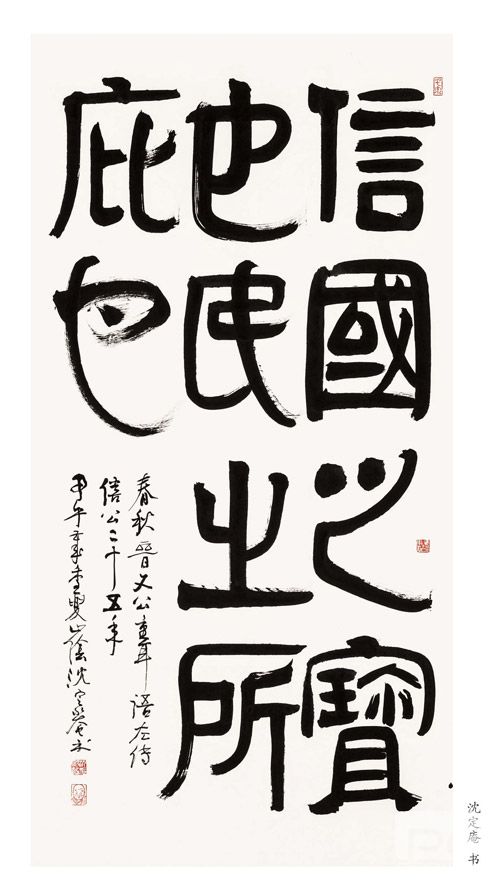 信國之寶
也民之所
庇也
春秋晉文公重耳語左傳
僖公二十五年
甲午年季夏山陰沈定菴书
沈定庵 书